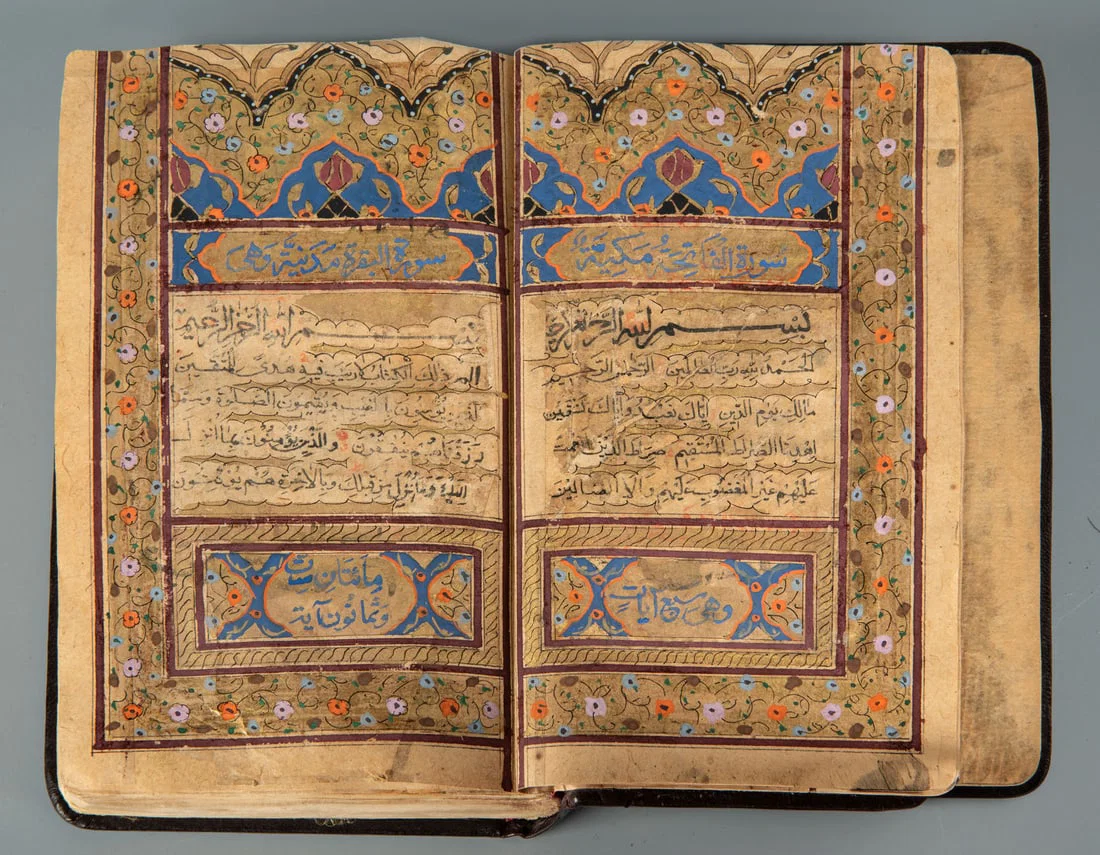 سورة الفاتحة مكية
بسم الله الرحمن الرحيم
الحمد لله رب العلمين الرحمن الرحيم
مالك يوم الدين إياك نعبد وإياك نستعين
اهدنا الصراط المستقيم صرط الذين انعمت
عليهم غير المغضوب عليهم ولا الضالين
وهي سبع آيات
سورة البقرة مدنية وهي
بسم الله الرحمن الرحيم
الم ذلك الكتاب لا ريب فيه هدى للمتقين
الذين يؤمنون بالغيب ويقيمون الصلوة ومما
رزقناهم ينفقون والذين يؤمنون بما انزل
اليك وما انزل من قبلك وبالاخرة هم يوقنون
مائتان ست
وثمانون آية